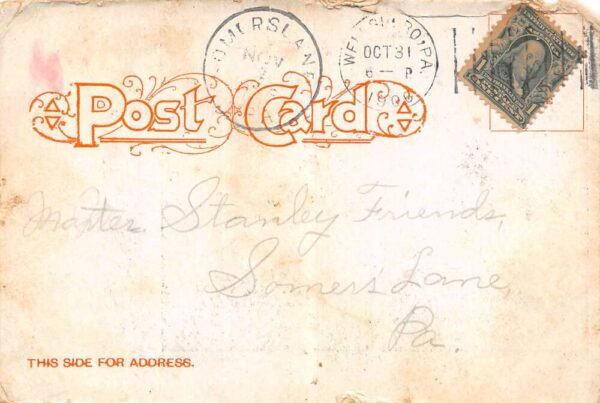 SOMERSLANE
NOV
WELLSBORO, PA.
OCT 31
6 - P
Post Card
Master Stanley Friends,
Somers Lane,
Pa.
THIS SIDE FOR ADDRESS.